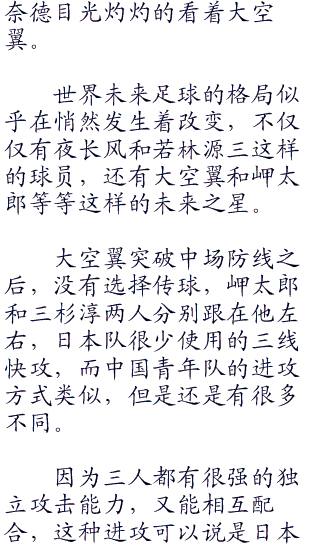 奈德目光灼灼的看着大空
翼。
世界未来足球的格局似
乎在悄然发生着改变，不仅
仅有夜长风和若林源三这样
的球员，还有大空翼和岬太
郎等等这样的未来之星。
大空翼突破中场防线之
后，没有选择传球，岬太郎
和三杉淳两人分别跟在他左
右，日本队很少使用的三线
快攻，而中国青年队的进攻
方式类似，但是还是有很多
不同。
因为三人都有很强的独
立攻击能力，又能相互配
合，这种进攻可以说是日本